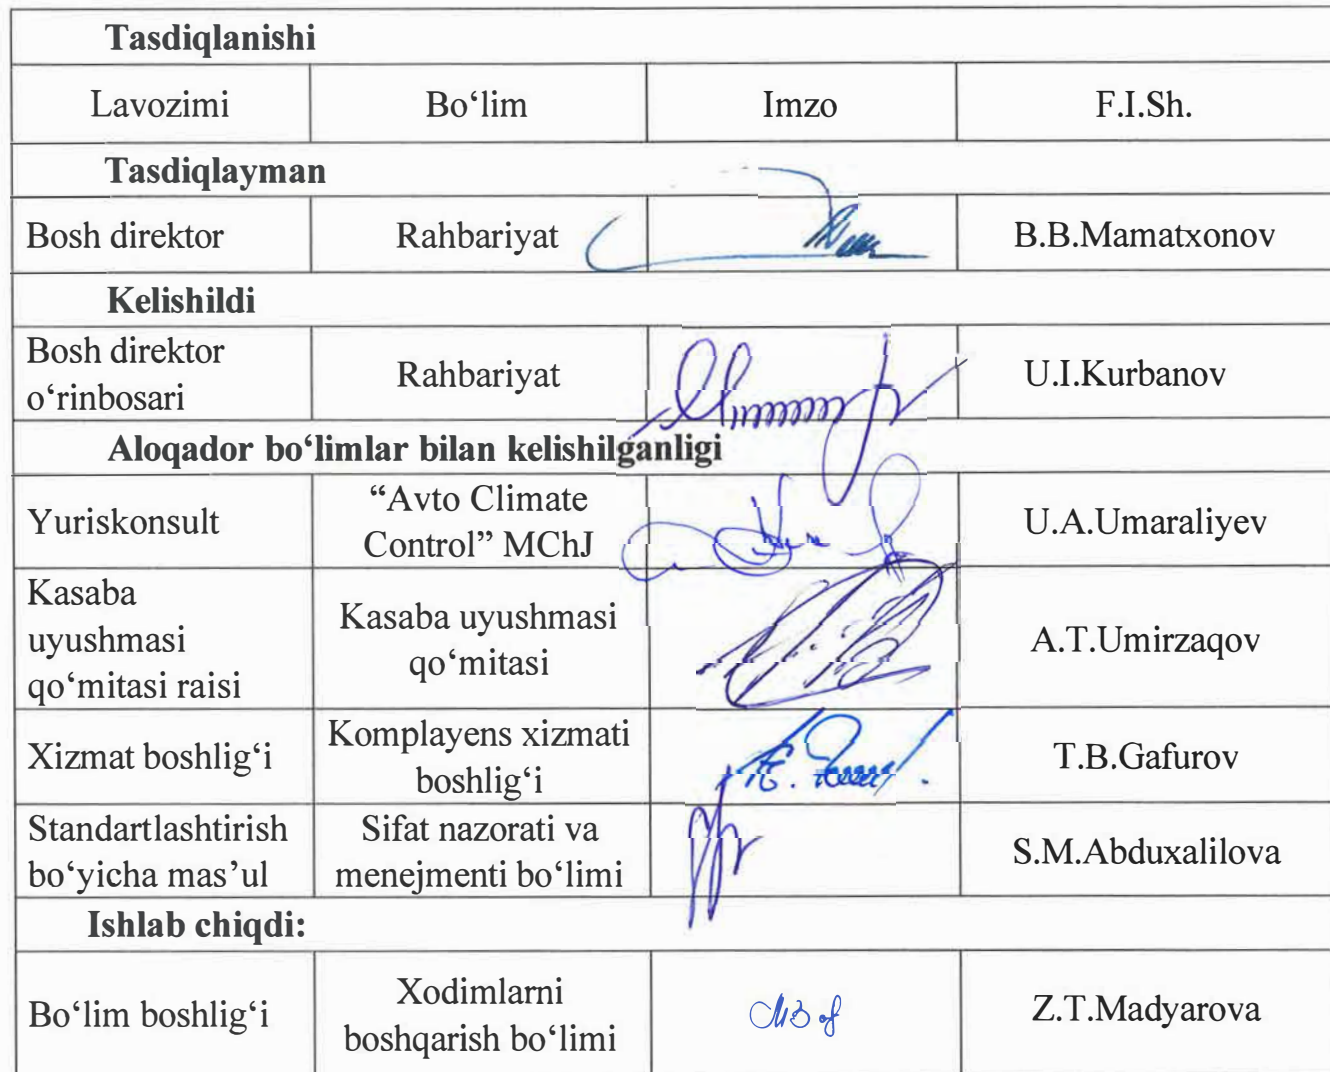 Tasdiqlanishi
Lavozimi Bo‘lim Imzo F.I.Sh.
Tasdiqlayman
Bosh direktor Rahbariyat B.B.Mamatxonov
Kelishildi
Bosh direktor
o‘rinbosari
Rahbariyat
U.I.Kurbanov
Aloqador bo‘limlar bilan kelishilganligi
Yuriskonsult
“Avto Climate
Control” MChJ
U.A.Umaraliyev
Kasaba
uyushmasi
qo‘mitasi raisi
Kasaba uyushmasi
qo‘mitasi
A.T.Umirzaqov
Xizmat boshlig‘i
Komplayens xizmati
boshlig‘i
T.B.Gafurov
Standartlashtirish
bo‘yicha mas’ul
Sifat nazorati va
menejmenti bo‘limi
S.M.Abduxalilova
Ishlab chiqdi:
Bo‘lim boshlig‘i
Xodimlarni
boshqarish bo‘limi
Z.T.Madyarova